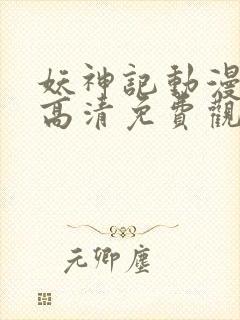 妖神記動漫
高清免費觀
元卿塵